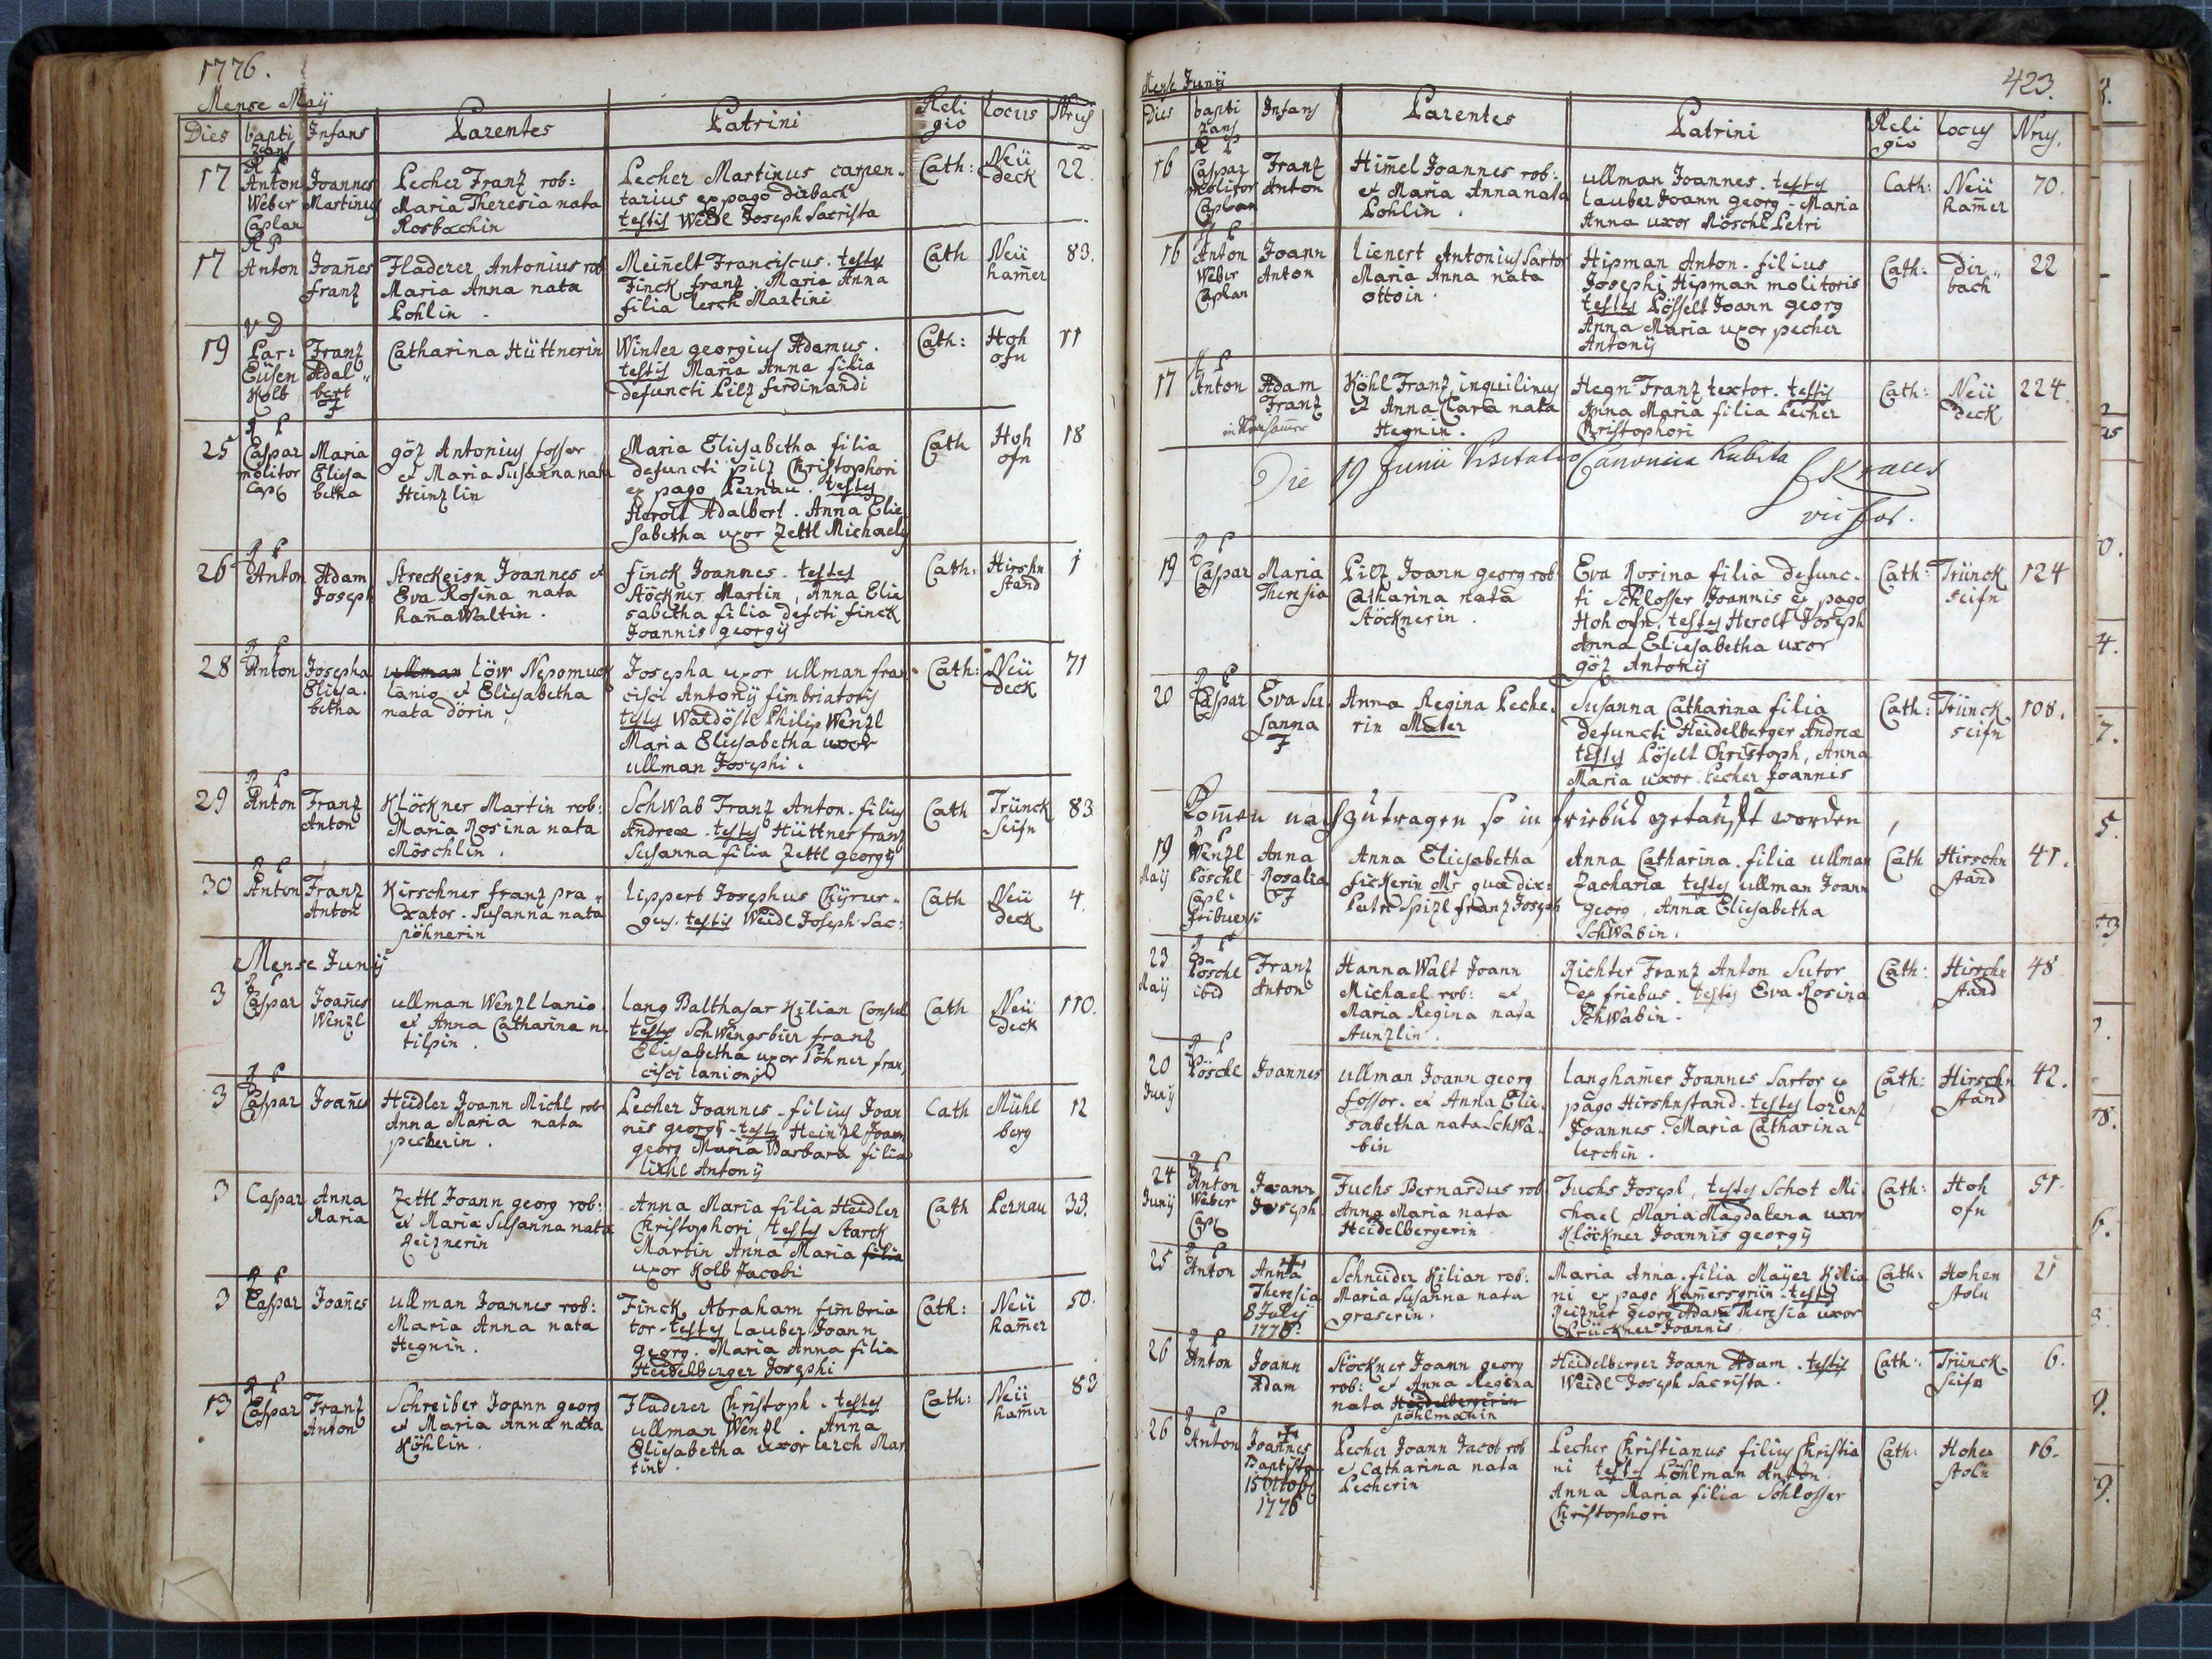 1776.
Mense Maÿ
Dies baptizans Infans Parentes Patrini Religio Locus Nrus
17 R P Anton Weber Caplan
Joannes Martinus
Pecher Franz rob:
Maria Theresia nata
Rosbachin
Pecher Martinus carpen-
tarius ex pago dirbach
testis Weidl Joseph Sacrista
Cath: Neüdeck 22.
17 R P Anton
Joañes Franz
Fladerer Antonius rob
Maria Anna nata
Pohlin.
Meiñelt Franciscus. testes
Finck franz. Maria Anna
filia lerch Martini
Cath Neüham̃er 83.
19 V D Par: Eüsen Kolb
Franz Adalbert
Catharina Hüttnerin
Winter georgius Adamus.
testis Maria Anna filia
defuncti Pilz ferdinandi
Cath: Hohofn 11
25 R P Caspar molitor
Maria Elisabetha
göz Antonius fosser
et Maria Susanna nata
Heinzlin
Maria Elisabetha filia
defuncti pilz Christophori
ex pago Pernau. testes
Herolt Adalbert. Anna Elie
sabetha uxor Zettl Michaelis
Cath Hohofn 18
26 R P Anton
Adam Joseph
Streckeisn Joannes et
Eva Rosina nata
hañaWaltin.
finck Joannes. testes
Stöckner Martin, Anna Elie
sabetha filia defcti finck
Joannis georgÿ
Cath: Hirshnstand 1
28 R P Anton
Josepha Eliesabetha
ullman löw Nepomuck
lanio et Eliesabetha
nata dörin.
Josepha uxor ullman fran
cisci Antonÿ fimbriatoris
testes Philip Wenzl
Maria Eliesabetha uxor
ullman Josephi.
Cath: Neüdeck 71
29 R P Anton
Franz Anton
Klöckner Martin rob:
Maria Rosina nata
Möschlin.
Schwab Franz Anton. filius
Andreæ. testes Hüttner franz
Susanna filia Zettl georgÿ
Cath TrünckSeifn 83
30 R P Anton
Franz Anton
Kirschner franz pra
xator. Susanna nata
pöhnerin
Lippert Josephus Chÿrur
gus. testis Weidl Joseph Sac:
Cath Neüdeck 4.
Mense Junÿ
3 R P Caspar
Joañes Wenzl
ullman Wenzl lanio.
et Anna Catharina n.
tilpin.
Lang Balthasar Kilian Consul
testes Schwengsbier franz
Eliesabetha uxor Pöhner fran
cisci lanionis
Cath Neüdeck 110.
3 R P Caspar
Joañes
Heidler Joann Michl rob
Anna Maria nata
pecherin.
Pecher Joannes. filius Joan
nis georgÿ. testes Heinzl Joann
georg Maria Barbara filia
Antonÿ
Cath Mühlberg 12
3 Caspar
Anna Maria
Zettl Joann georg rob:
et Maria Susanna nata
Reiznerin
Anna Maria filia Heidler
Christophori, testes Starck
Martin Anna Maria filia
uxor Kolb Jacobi
Cath Pernau 33.
3 R P Caspar
Joañes
ullman Joannes rob:
Maria Anna nata
Hegnin.
Finck Abraham fimbria
tor. testes lauber Joann
georg. Maria Anna filia
Heidelberger Josephi
Cath: Neüham̃er 50.
13 R P Caspar
Franz Anton
Schreiber Joann georg
et Maria Anna nata
Köhlin.
Fladerer Christoph. testes
ullman Wenzl. Anna
Eliesabetha uxor lerch Mar
tini.
Cath: Neüham̃er 83
Mense Junÿ
423.
Dies baptizans Infans Parentes Patrini Religio Locus Nrus.
16 R P Caspar molitor Caplan
Franz Anton
Him̃el Joannes rob:
et Maria Anna nata
Pohlin.
ullman Joannes. testes
lauber Joann georg. Maria
Anna uxor Röschl Petri
Cath: Neüham̃er 70.
16 R P Anton Weber Caplan
Joann Anton
Lienert Antonius Sartor
Maria Anna nata
ottoin.
Hipman Anton. filius
Josephi Hipman molitoris
testes Pösselt Joann georg
Anna Maria uxor pecher
Antonÿ
Cath: Dirbach 22
17 R P Anton
Adam Franz
Köhl Franz inquilinus
et Anna Clara nata
Hegnin.
Hegn Franz textor. testis
Anna Maria filia Pecher
Christophori
Cath: Neüdeck 224.
Die 19 Junii Visitatio Canonica habita
19 R P Caspar
Maria Theresia
Pilz Joann georg rob
Catharina nata
Stöcknerin.
Eva Rosina filia defunc-
ti Schlosser Joannis ex pago
Hohofn. testes Herolt Joseph
Anna Eliesabetha uxor
göz Antonÿ
Cath: Trünckseifn 124
20 R P Caspar
Eva Susanna
Anna Regina Peche.
rin Mater
Susanna Catharina filia
defuncti Heidelberger Andreæ
testes Pöselt Christoph, Anna
Maria uxor Pecher Joannis
Cath: Trünckseifn 108.
Kom̃en nachzutragen so in friebus getaufft worden
19 Maÿ R P Wenzl Pöschl Capl: fribuessi
Anna Rosalia
Anna Eliesabetha
fickerin Mr quæ dix:
Patrē Spizl franz Joseph
Anna Catharina. filia ullman
Zachariæ testes ullman Joann
georg, Anna Eliesabetha
Schwabin.
Cath Hirschnstand 41.
23 Maÿ R P Pöschl ibid
Franz Anton
Hanna Walt Joann
Michael rob: et
Maria Regina nata
Richter Franz Anton Sutor
ex friebus. testis Eva Rosina
Schwabin.
Cath: Hirschnstand 48
20 Junÿ R P Pöschl
Joannes
ullman Joann georg
fossor. et Anna Elie.
sabetha nata Schwa-
bin
Langham̃er Joannes Sartor ex
pago Hirshnstand. testes lorenz
Joannes. Maria Catharina
lerchin.
Cath: Hirschnstand 42.
24 Junÿ R P Anton Weber Capl
Joann Joseph
Fuchs Bernardus rob
Anna Maria nata
Heidelbergerin
Fuchs Joseph, testes Schot Mi
chael Maria Magdalena uxor
Klöckner Joannis georgÿ
Cath: Hohofn 51.
25 R P Anton
Anna Theresia 8 Julÿ 1776.
Schneider Kilian rob:
Maria Susanna nata
graserin.
Maria Anna. filia Maÿer Kilia
ni ex pago Ham̃ersgrün. testes
Reizner Georg Adam Theresia uxor
Brückner Joannis
Cath: Hohenstoln 21
26 R P Anton
Joann Adam
Stöckner Joann georg
rob: et Anna Regina
nata Heidelbergerin
pöhlmanin
Heidelberger Joann Adam. testis
Weidl Joseph Sacrista.
Cath: TrünckSeifn 6.
26 R P Anton
Joannes Baptista 15 Octobr 1776
Pecher Joann Jacob rob
et Catharina nata
Pecherin
Pecher Christianus filius Christia
ni testes Pöhlman Anton
Anna Maria filia Schlosser
Christophori
Cath: Hohenstoln 16.